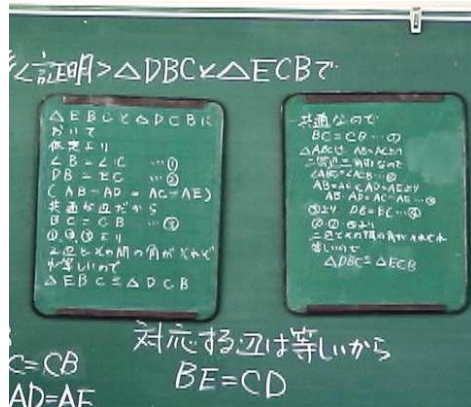 <証明>△DBCと△ECBで
△EBCと△DCBに
おいて
仮定より
∠B=∠C …①
DB=EC …②
(AB-AD=AC-AE)
共通な辺だから
BC=CB …③
①,②,③より
2辺とその間の角がそれぞ
れ等しいので
△EBC≡△DCB
共通なので
BC=CB…①
△ABCは AB=ACより
二等辺三角形なので
∠ABC=∠ACB…②
AB=AC,AD=AEより
AB-AD=AC-AE…③
③より DB=EC…④
①②④より
二辺とその間の角がそれぞれ
等しいので
△DBC≡△ECB
対応する辺は等しいから
BE=CD
C=CB
AD=AE